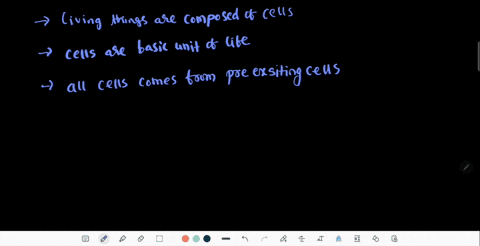 → living things are composed of cells
→ cells are basic unit of life
→ all cells comes from pre exsiting cells